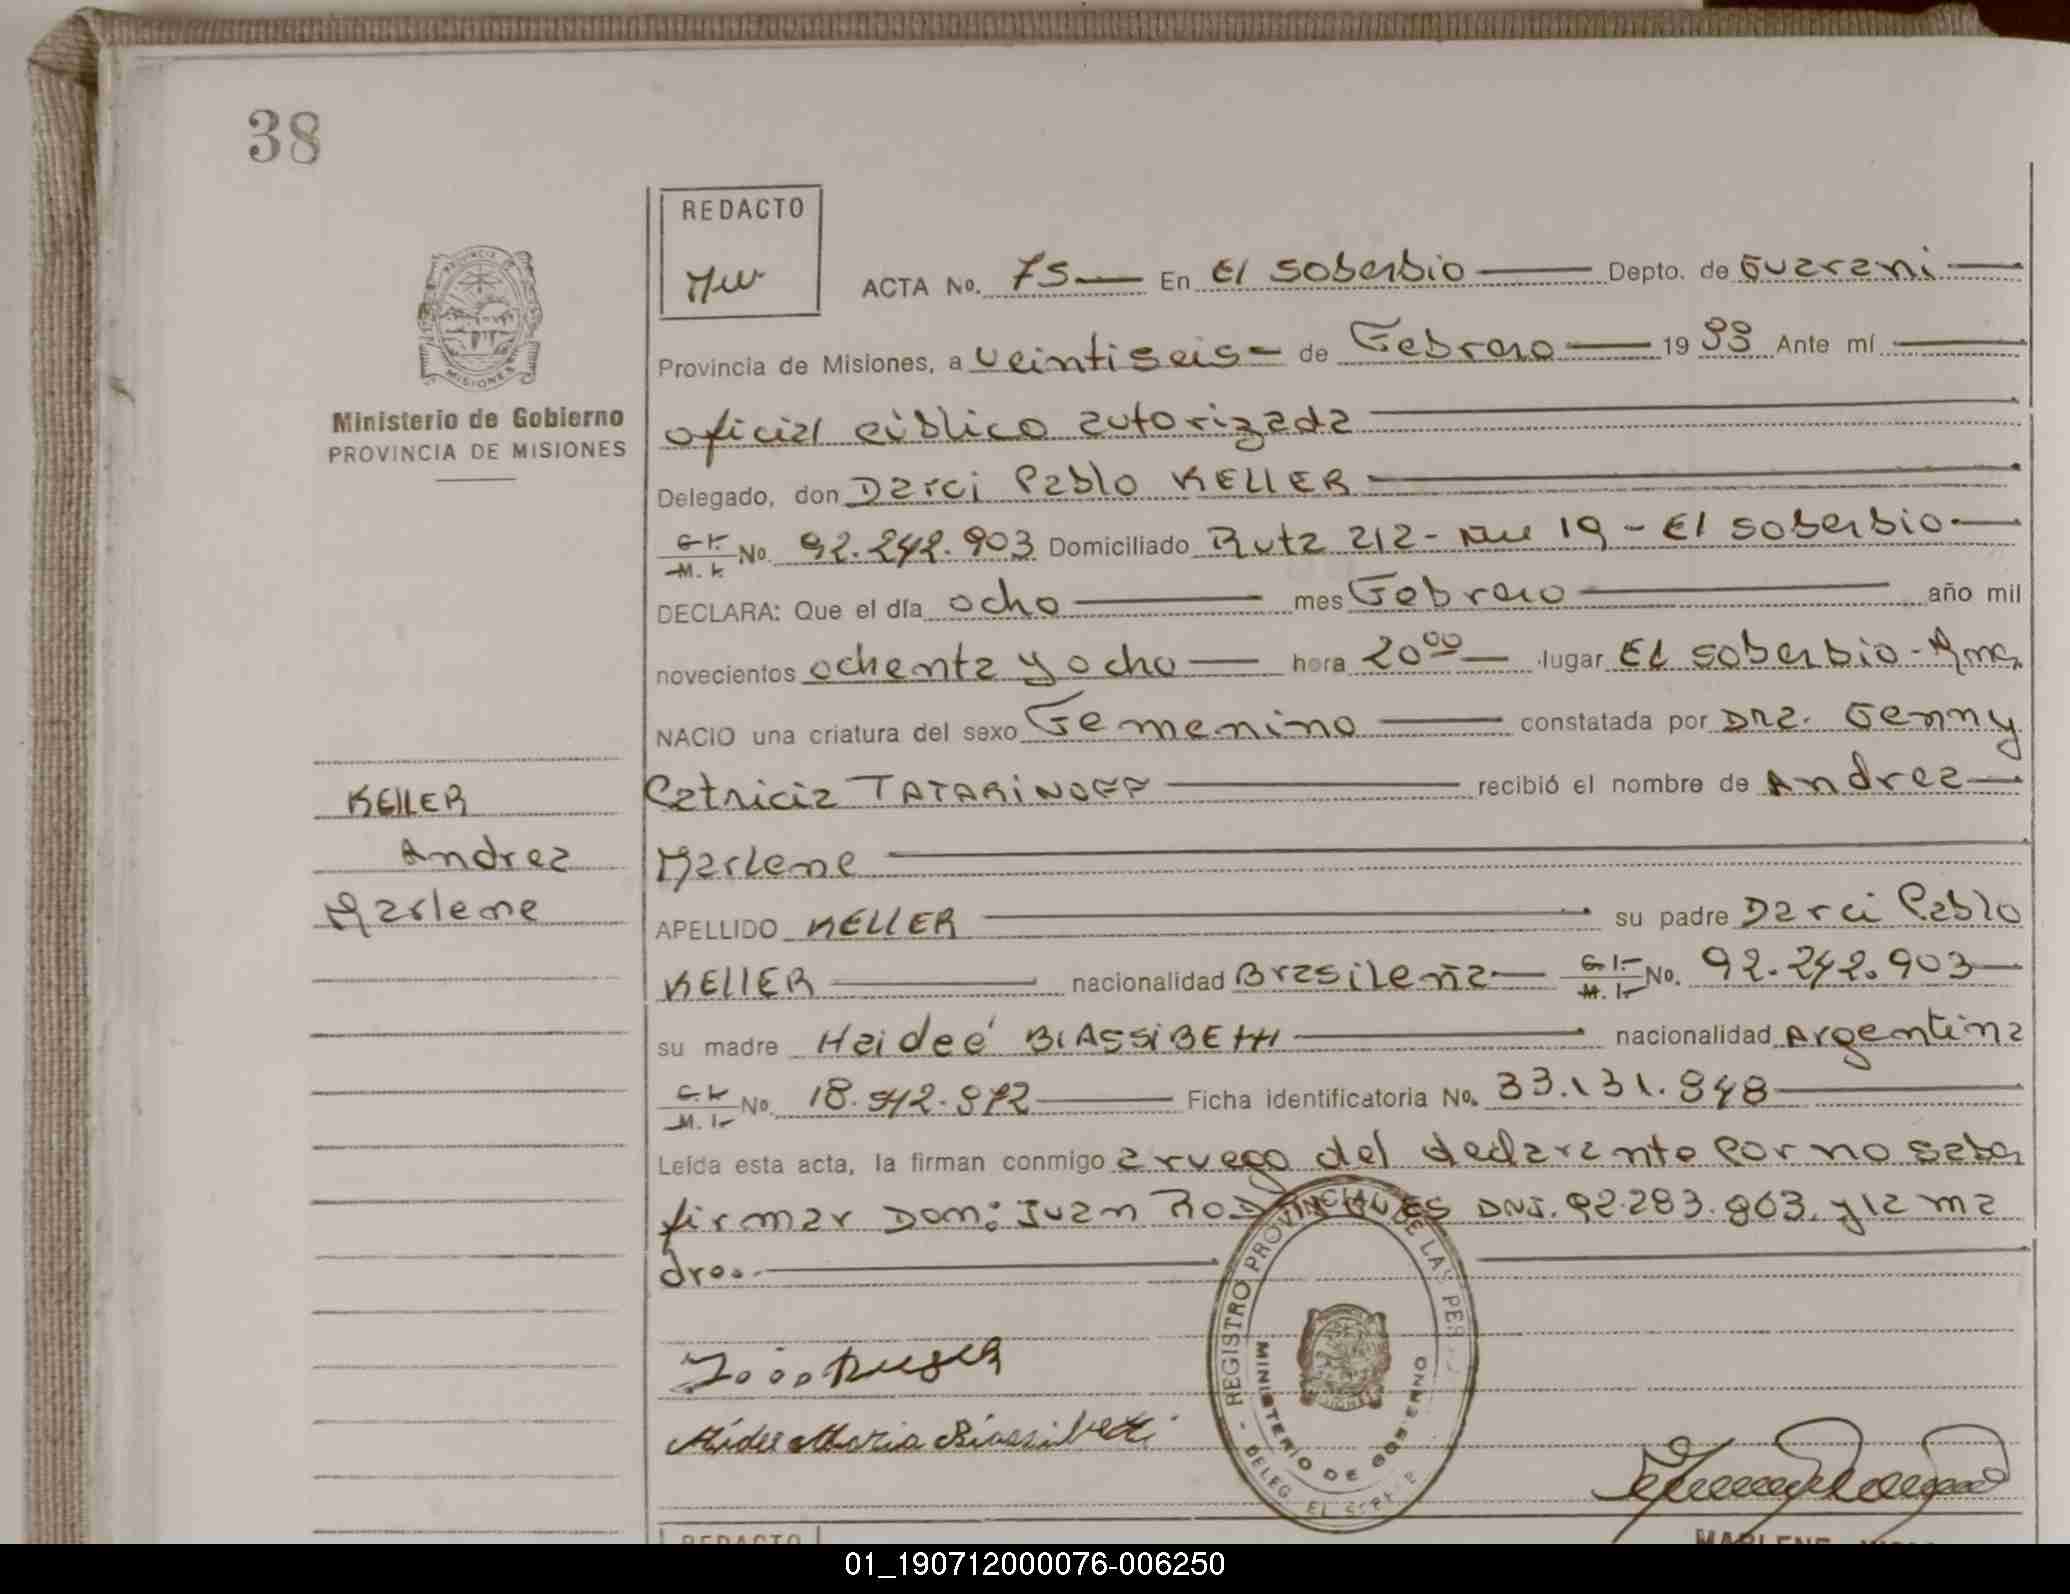 38
REDACTO
ACTA No. 75 En El Soberbio Depto. de Guarani
Provincia de Misiones, a veintiseis de Febrero 1988 Ante mí
oficial público autorizada
Delegado, don Darci Pablo KELLER
C. I. M. I. No. 92.242.903 Domiciliado Ruta 212 - Km 19 - El Soberbio
DECLARA: Que el día ocho mes Febrero año mil
novecientos ochenta y ocho hora 20⁰⁰ lugar El Soberbio - Mnes
NACIO una criatura del sexo Femenino constatada por Dra. Genny
Patricia TATARINOFF recibió el nombre de Andrea
Marlene
APELLIDO KELLER su padre Darci Pablo
KELLER nacionalidad Brasileña C. I. M. I. No. 92.242.903
su madre Haideé BIASSIBETTI nacionalidad Argentina
C. I. M. I. No. 18.542.972 Ficha identificatoria No. 33.131.848
Leída esta acta, la firman conmigo a ruego del declarante por no saber
firmar Don: Juan DNI. 92.283.863. y la ma
dre.
Ministerio de Gobierno
PROVINCIA DE MISIONES
KELLER
Andrea
Marlene
PROVINCIA DE
MISIONES
REGISTRO PROVINCIAL DE LAS PERS
MINISTERIO DE GOBIERNO
DELEG. EL
Maria
MARLENE
REDACTO
01_190712000076-006250